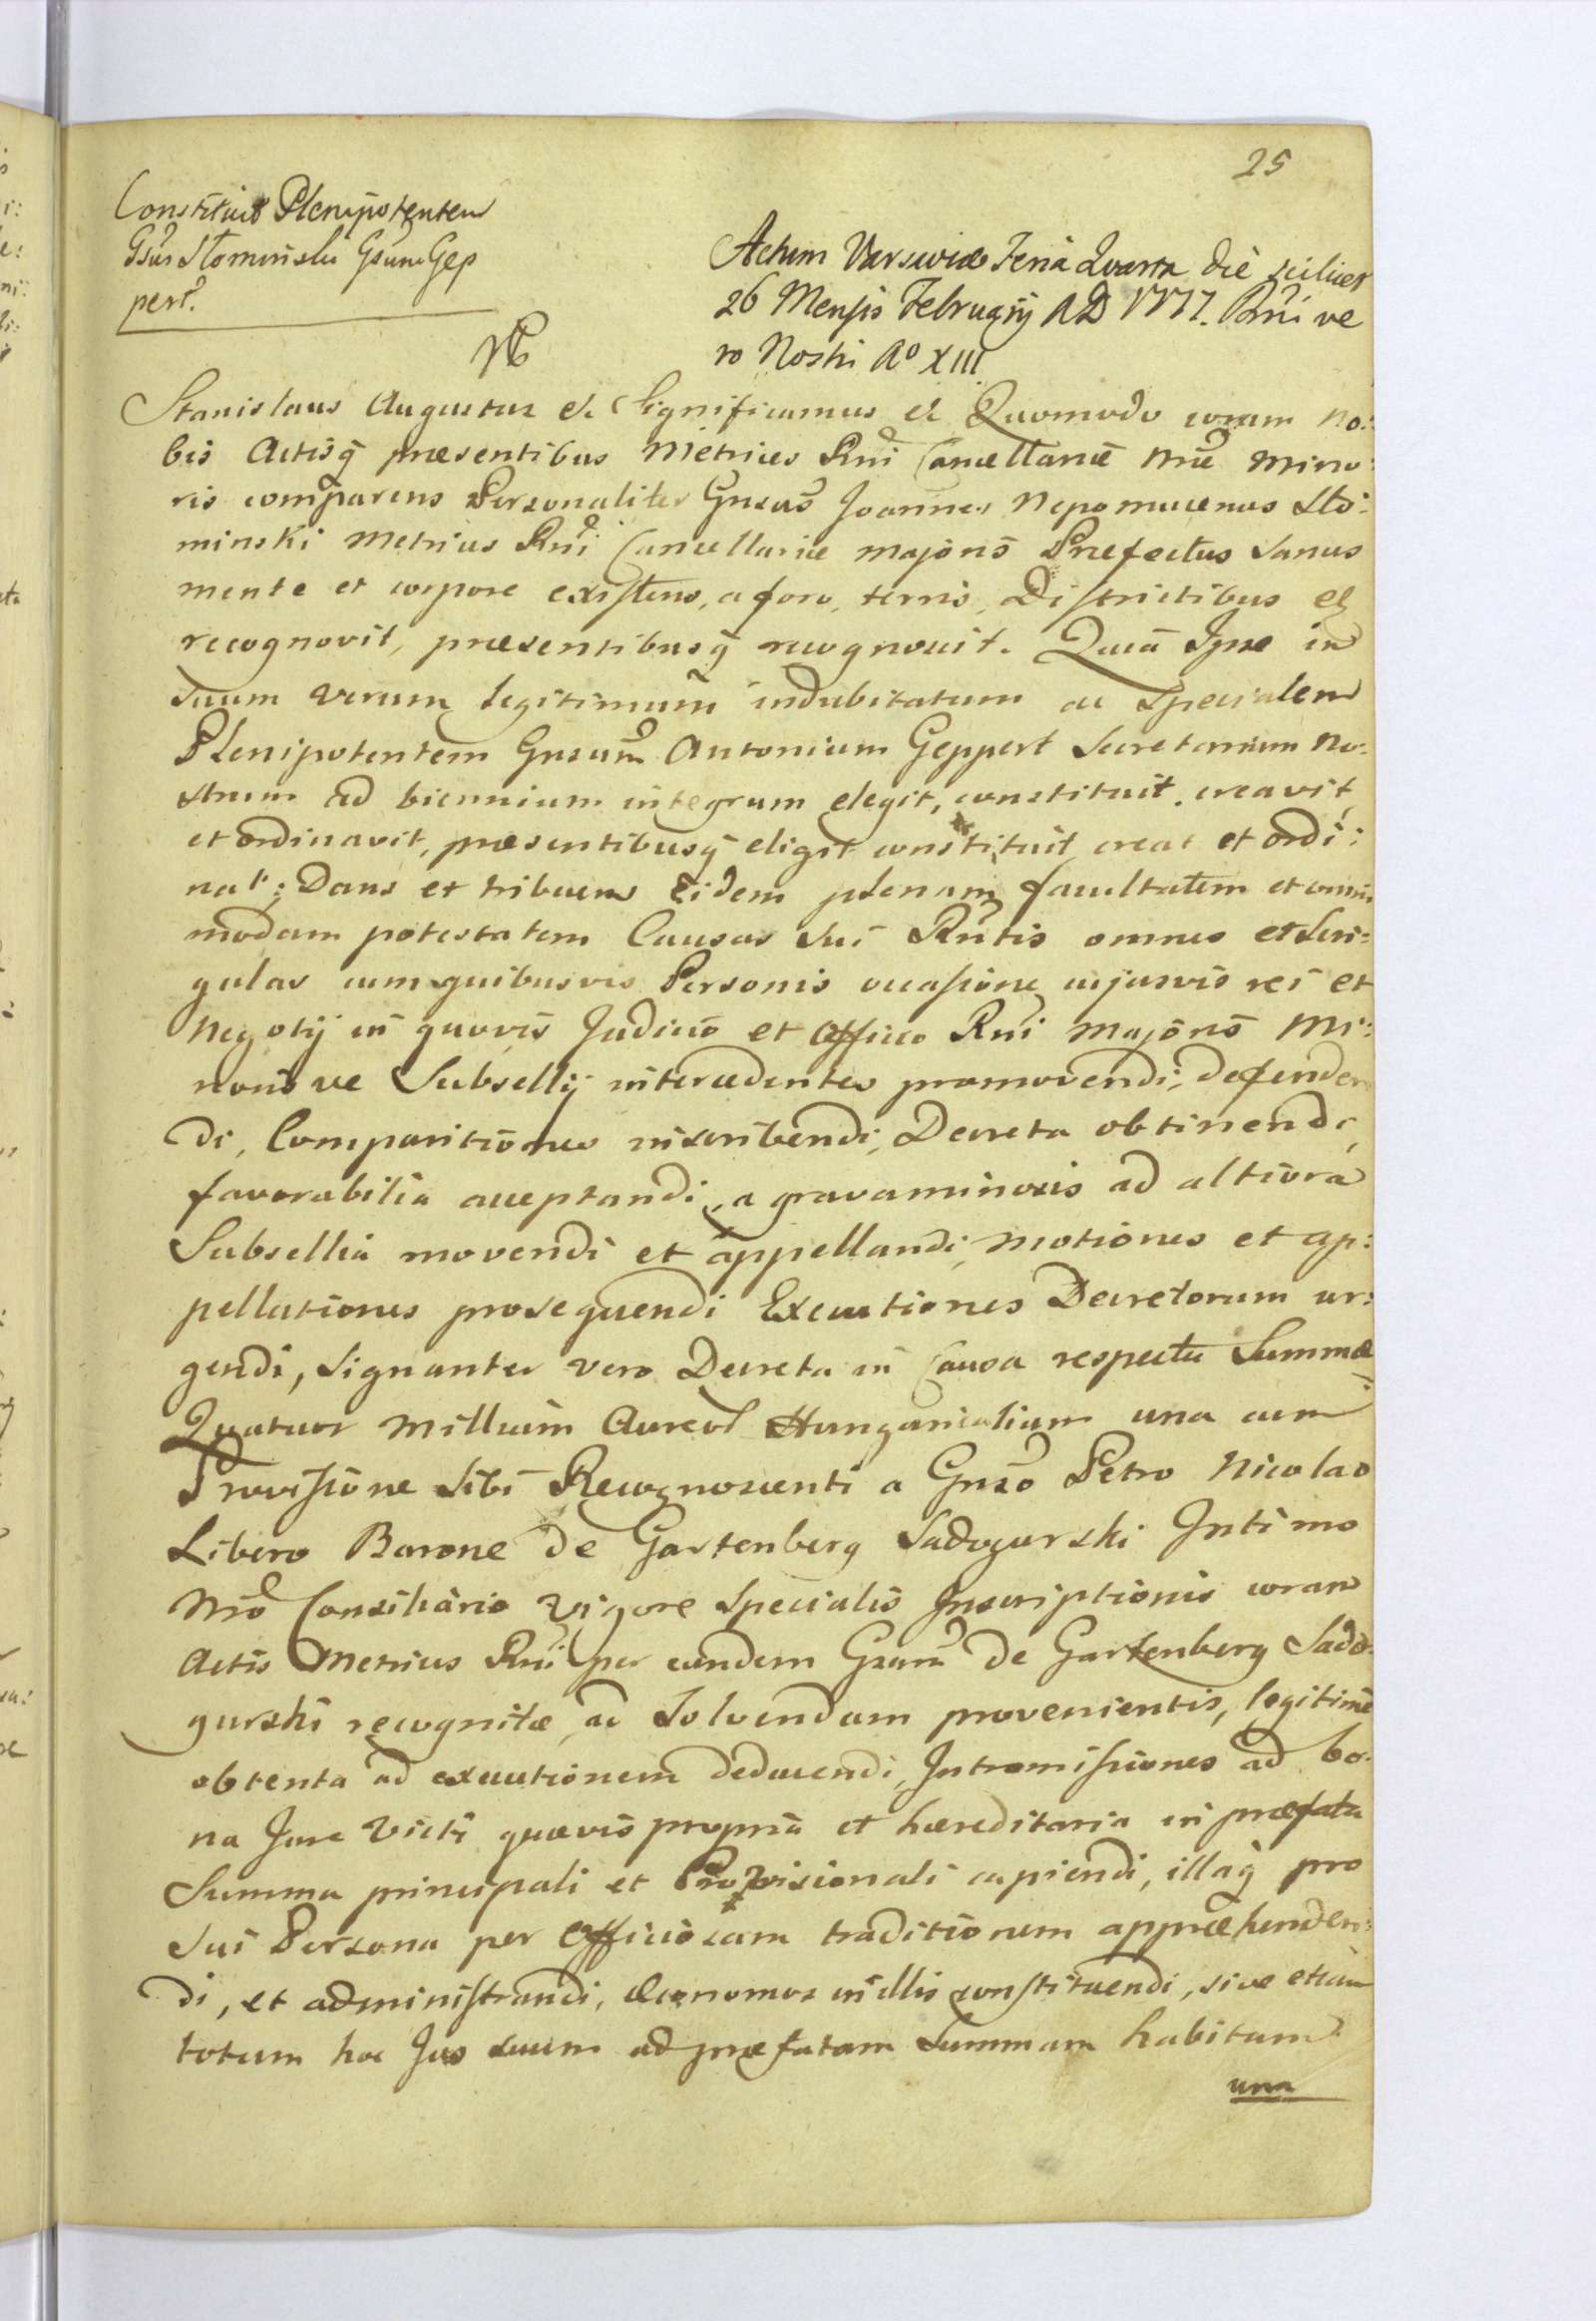 25
Constituit Plenipotentem
Gsūs Słominski Gsūm Gep
pert.
Actum Varsaviæ Feria Quarta die scilicet
26 Mensis Februarij AD 1777. Rni ve
ro Nostri Aº XIII
Stanislaus Augustus &c Significamus &c Quomodo coram No:
bis Actisq̄ præsentibus Metrices Rni Cancellariæ Nræ Mino:
ris comparens Personaliter Gnsūs Joannes Nepomucenus Sło:
minski Metrices Rni Cancellariæ Majoris Præfectus sanus
mente et corpore existens, a foro, terris, Districtibus &
recognovit, præsentibusq̄ recognoscit. Quia Ipse in
suum verum legitimum indubitatum ac Specialem
Plenipotentem Gnsum Antonium Geppert Secretarium No:
strum ad biennium integrum elegit, constituit, creavit,
et ordinavit, præsentibusq̄ eligit constituit creat et ordi:
nat: Dans et tribuens Eidem plenam facultatem et omni
modam potestatem Causas sui Rntis omnes et Sin:
gulas cum quibusvis Personis occasione cujusvis rei et
Negotij in quovis Judicio et Officio Rni Majoris Mi:
noris ve Subsellij intercedentes promovendi, defenden
di, Comparitiones inscribendi, Decreta obtinendi,
favorabilia acceptandi, a gravaminosis ad altiora
Subsellia movendi et appellandi, motiones et ap:
pellationes prosequendi Executiones Decretorum ur:
gendi, signanter vero Decreta in Causa respectu Summæ
Quatuor Millium Aureor Hungaricalium una cum
Provisione sibi Recognoscenti a Gnso Petro Nicolao
Libero Barone de Gartenberg Sadogurski Intimo
Nro Consiliario Vigore Specialis Inscriptionis coram
Actis Metrices Rni per eundem Gsum de Gartenberg Sado:
gurski recognitæ, ac Solvendam provenientis, legitime
obtenta ad executionem deducendi, Intromissiones ad bo:
na Jure Victi quævis propria et hæreditaria in præfata
Summa principali et Provisionali capiendi, illaq̄ pro
sui Persona per Officiosam traditionem appræhenden:
di, et administrandi, Œconomos in illis constituendi, sive etiam
totum hoc Jus suum ad præfatam Summam habitum
una